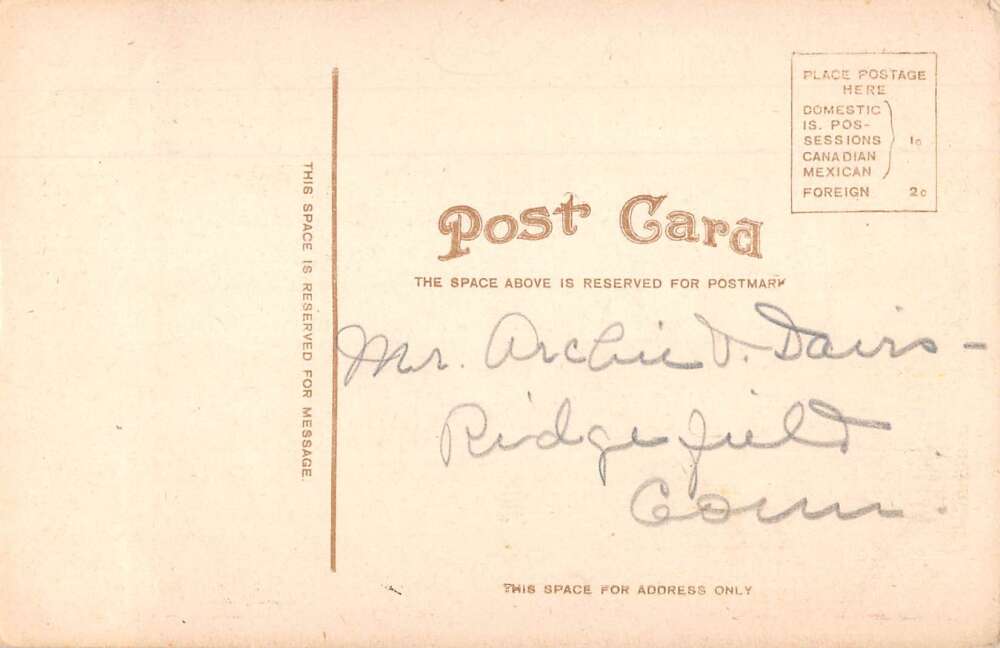 PLACE POSTAGE
HERE
DOMESTIC
IS. POS-
SESSIONS
CANADIAN
MEXICAN
1c
FOREIGN 2c
Post Card
THE SPACE ABOVE IS RESERVED FOR POSTMARK
THIS SPACE IS RESERVED FOR MESSAGE.
Mr. Archie D. Davis -
Ridgefield
Conn.
THIS SPACE FOR ADDRESS ONLY